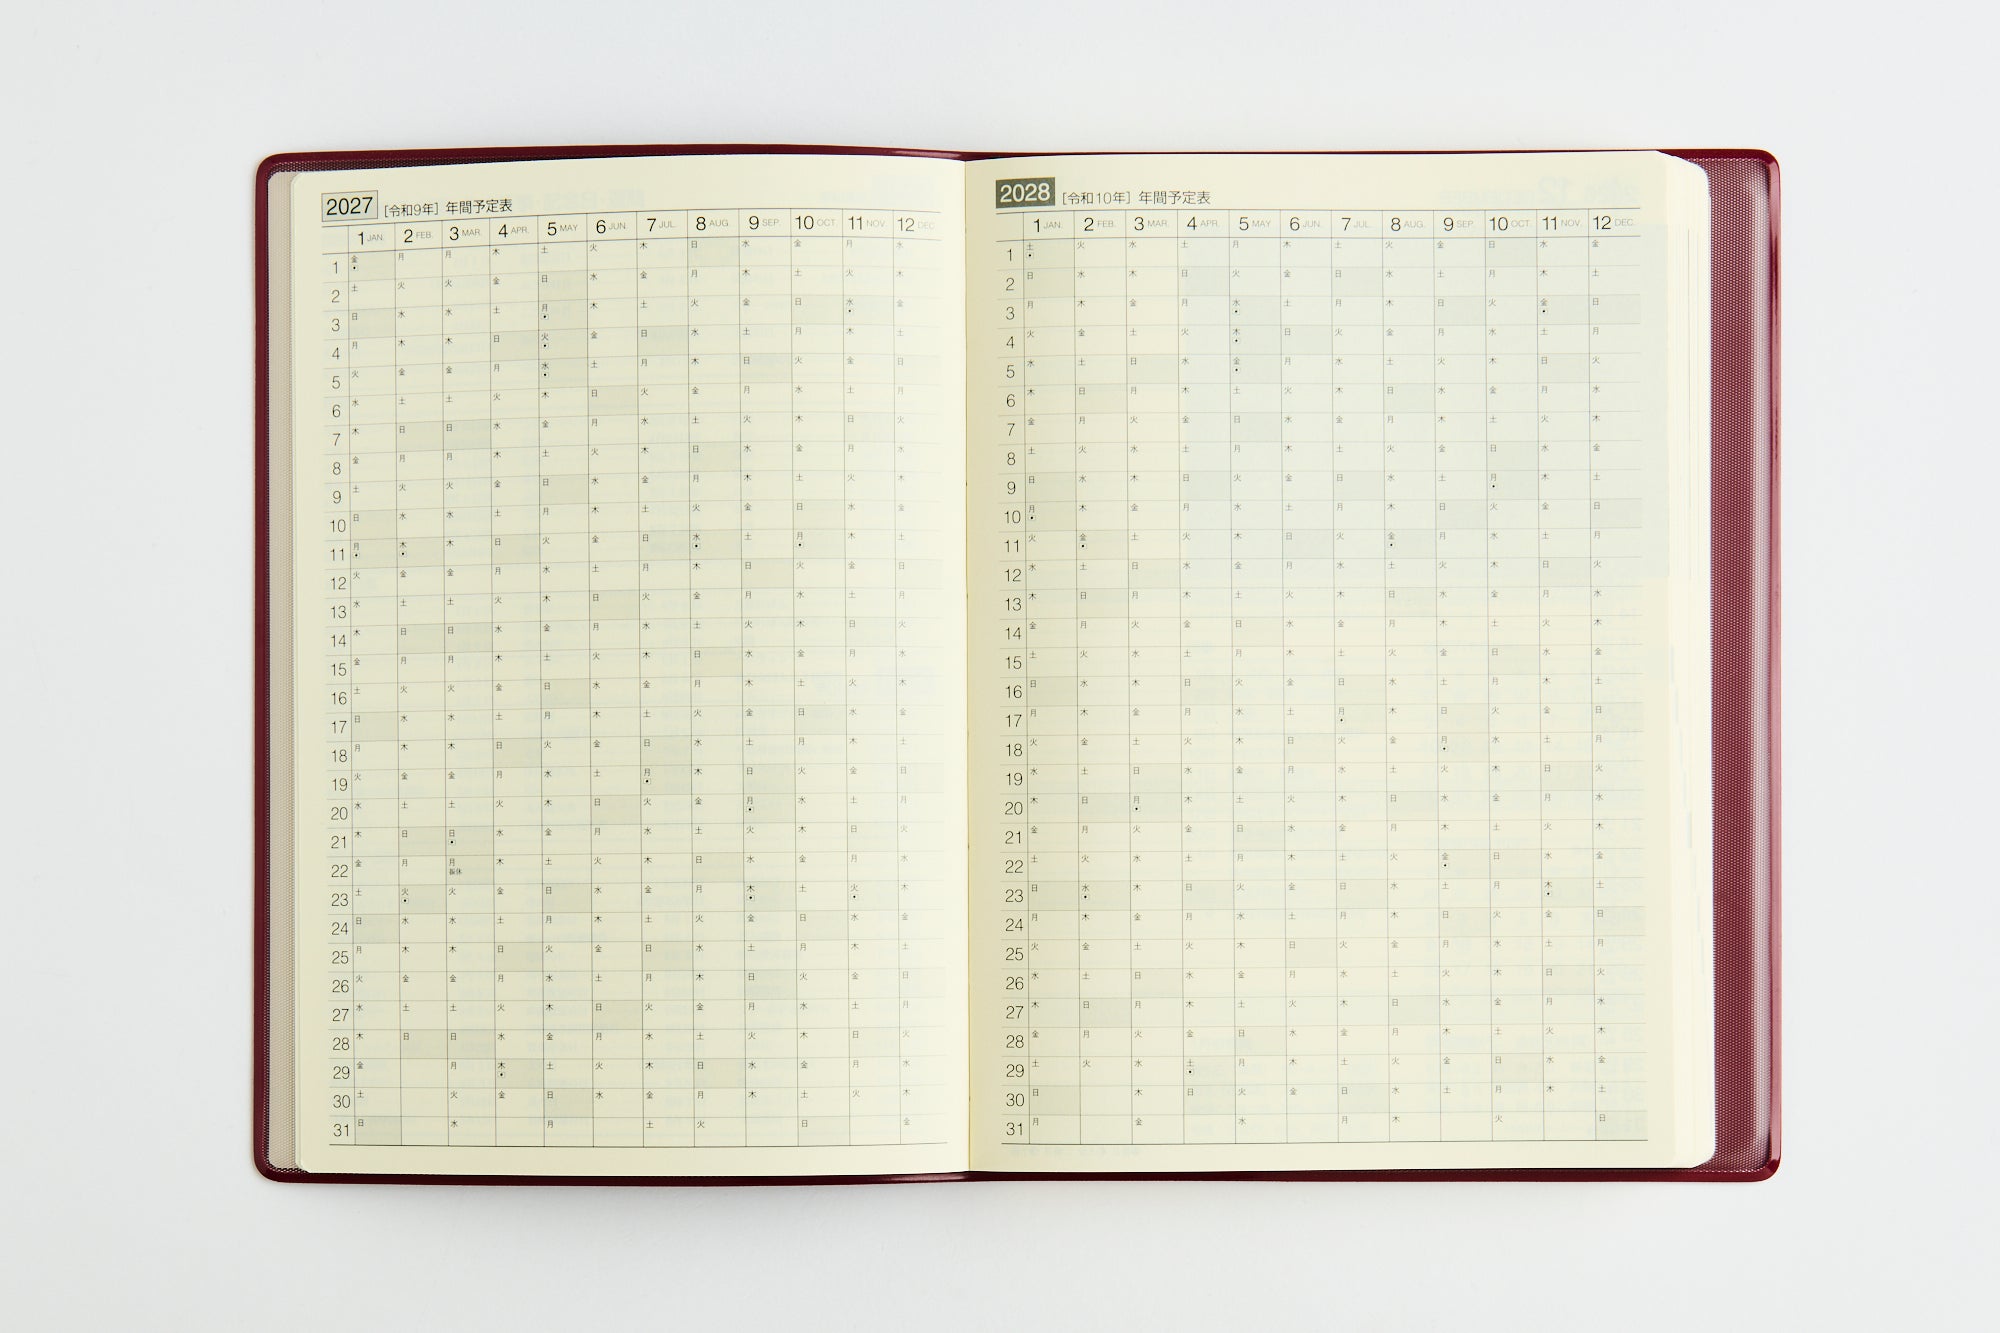 2027 [令和9年] 年間予定表
1 JAN. 2 FEB. 3 MAR. 4 APR. 5 MAY 6 JUN. 7 JUL. 8 AUG. 9 SEP. 10 OCT. 11 NOV. 12 DEC.
1 金 月 月 木 土 火 木 日 水 金 月 水
2 土 火 火 金 日 水 金 月 木 土 火 木
3 日 水 水 土 月 木 土 火 金 日 水 金
4 月 木 木 日 火 金 日 水 土 月 木 土
5 火 金 金 月 水 土 月 木 日 火 金 日
6 水 土 土 火 木 日 火 金 月 水 土 月
7 木 日 日 水 金 月 水 土 火 木 日 火
8 金 月 月 木 土 火 木 日 水 金 月 水
9 土 火 火 金 日 水 金 月 木 土 火 木
10 日 水 水 土 月 木 土 火 金 日 水 金
11 月 木 木 日 火 金 日 水 土 月 木 土
12 火 金 金 月 水 土 月 木 日 火 金 日
13 水 土 土 火 木 日 火 金 月 水 土 月
14 木 日 日 水 金 月 水 土 火 木 日 火
15 金 月 月 木 土 火 木 日 水 金 月 水
16 土 火 火 金 日 水 金 月 木 土 火 木
17 日 水 水 土 月 木 土 火 金 日 水 金
18 月 木 木 日 火 金 日 水 土 月 木 土
19 火 金 金 月 水 土 月 木 日 火 金 日
20 水 土 土 火 木 日 火 金 月 水 土 月
21 木 日 日 水 金 月 水 土 火 木 日 火
22 金 月 月 振休 木 土 火 木 日 水 金 月 水
23 土 火 火 金 日 水 金 月 木 土 火 木
24 日 水 水 土 月 木 土 火 金 日 水 金
25 月 木 木 日 火 金 日 水 土 月 木 土
26 火 金 金 月 水 土 月 木 日 火 金 日
27 水 土 土 火 木 日 火 金 月 水 土 月
28 木 日 日 水 金 月 水 土 火 木 日 火
29 金 月 木 土 火 木 日 水 金 月 水
30 土 火 金 日 水 金 月 木 土 火 木
31 日 水 月 土 火 日 金
2028 [令和10年] 年間予定表
1 JAN. 2 FEB. 3 MAR. 4 APR. 5 MAY 6 JUN. 7 JUL. 8 AUG. 9 SEP. 10 OCT. 11 NOV. 12 DEC.
1 土 火 水 土 月 木 土 火 金 日 水 金
2 日 水 木 日 火 金 日 水 土 月 木 土
3 月 木 金 月 水 土 月 木 日 火 金 日
4 火 金 土 火 木 日 火 金 月 水 土 月
5 水 土 日 水 金 月 水 土 火 木 日 火
6 木 日 月 木 土 火 木 日 水 金 月 水
7 金 月 火 金 日 水 金 月 木 土 火 木
8 土 火 水 土 月 木 土 火 金 日 水 金
9 日 水 木 日 火 金 日 水 土 月 木 土
10 月 木 金 月 水 土 月 木 日 火 金 日
11 火 金 土 火 木 日 火 金 月 水 土 月
12 水 土 日 水 金 月 水 土 火 木 日 火
13 木 日 月 木 土 火 木 日 水 金 月 水
14 金 月 火 金 日 水 金 月 木 土 火 木
15 土 火 水 土 月 木 土 火 金 日 水 金
16 日 水 木 日 火 金 日 水 土 月 木 土
17 月 木 金 月 水 土 月 木 日 火 金 日
18 火 金 土 火 木 日 火 金 月 水 土 月
19 水 土 日 水 金 月 水 土 火 木 日 火
20 木 日 月 木 土 火 木 日 水 金 月 水
21 金 月 火 金 日 水 金 月 木 土 火 木
22 土 火 水 土 月 木 土 火 金 日 水 金
23 日 水 木 日 火 金 日 水 土 月 木 土
24 月 木 金 月 水 土 月 木 日 火 金 日
25 火 金 土 火 木 日 火 金 月 水 土 月
26 水 土 日 水 金 月 水 土 火 木 日 火
27 木 日 月 木 土 火 木 日 水 金 月 水
28 金 月 火 金 日 水 金 月 木 土 火 木
29 土 火 水 土 月 木 土 火 金 日 水 金
30 日 木 日 火 金 日 水 土 月 木 土
31 月 金 水 月 木 火 日